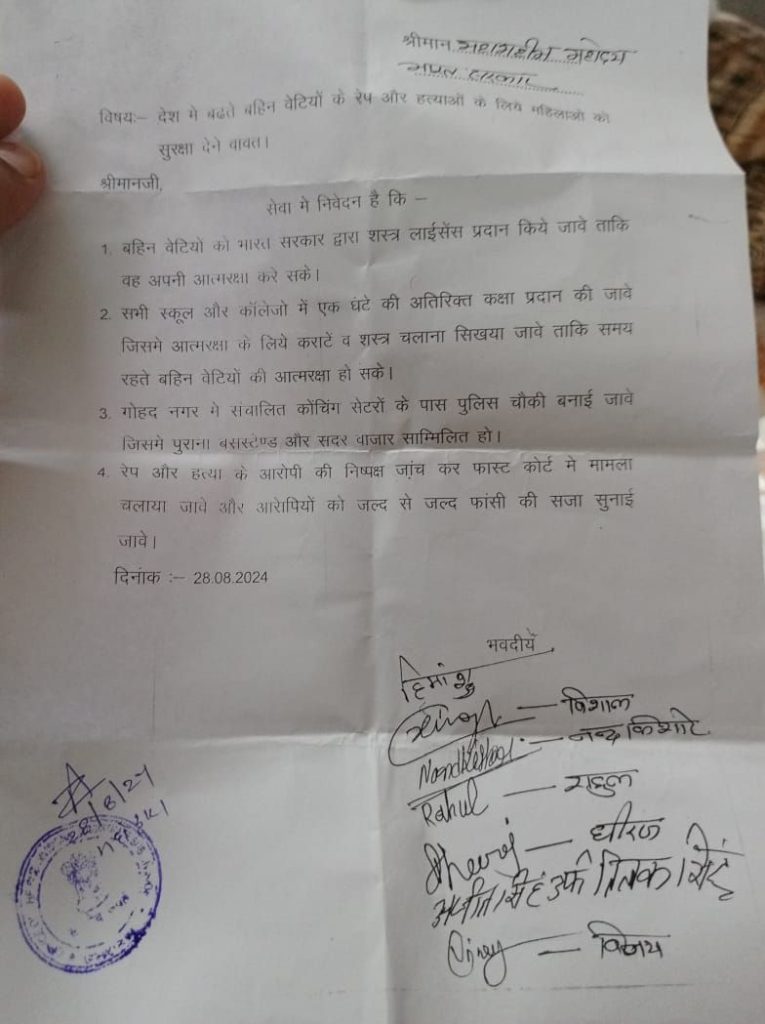 श्रीमान महामहीम महोदय
भारत सरकार
विषयः– देश मे बढते बहिन वेटियों के रेप और हत्याओं के लिये महिलाओं को
सुरक्षा देने वावत।
श्रीमानजी,
सेवा मे निवेदन है कि –
1. बहिन वेटियों को भारत सरकार द्वारा शस्त्र लाईसेंस प्रदान किये जावे ताकि
वह अपनी आत्मरक्षा करे सके।
2. सभी स्कूल और कॉलेजो में एक घंटे की अतिरिक्त कक्षा प्रदान की जावे
जिसमे आत्मरक्षा के लिये कराटें व शस्त्र चलाना सिखया जावे ताकि समय
रहते बहिन वेटियों की आत्मरक्षा हो सके।
3. गोहद नगर मे संचालित कोंचिंग सेटरों के पास पुलिस चौकी बनाई जावे
जिसमे पुराना बसस्टेण्ड और सदर वाजार साम्मिलित हो।
4. रेप और हत्या के आरोपी की निष्पक्ष जांच कर फास्ट कोर्ट मे मामला
चलाया जावे और आरोपियों को जल्द से जल्द फांसी की सजा सुनाई
जावे।
दिनांक :– 28.08.2024
भवदीय
हिमांशु
— विशाल
Nandkishor — नन्द किशोर
Rahul — राहुल
Dheeraj — धीरज
अजीत सिंह उर्फ तिलक सिंह
Vinay — विनय
28/8/24